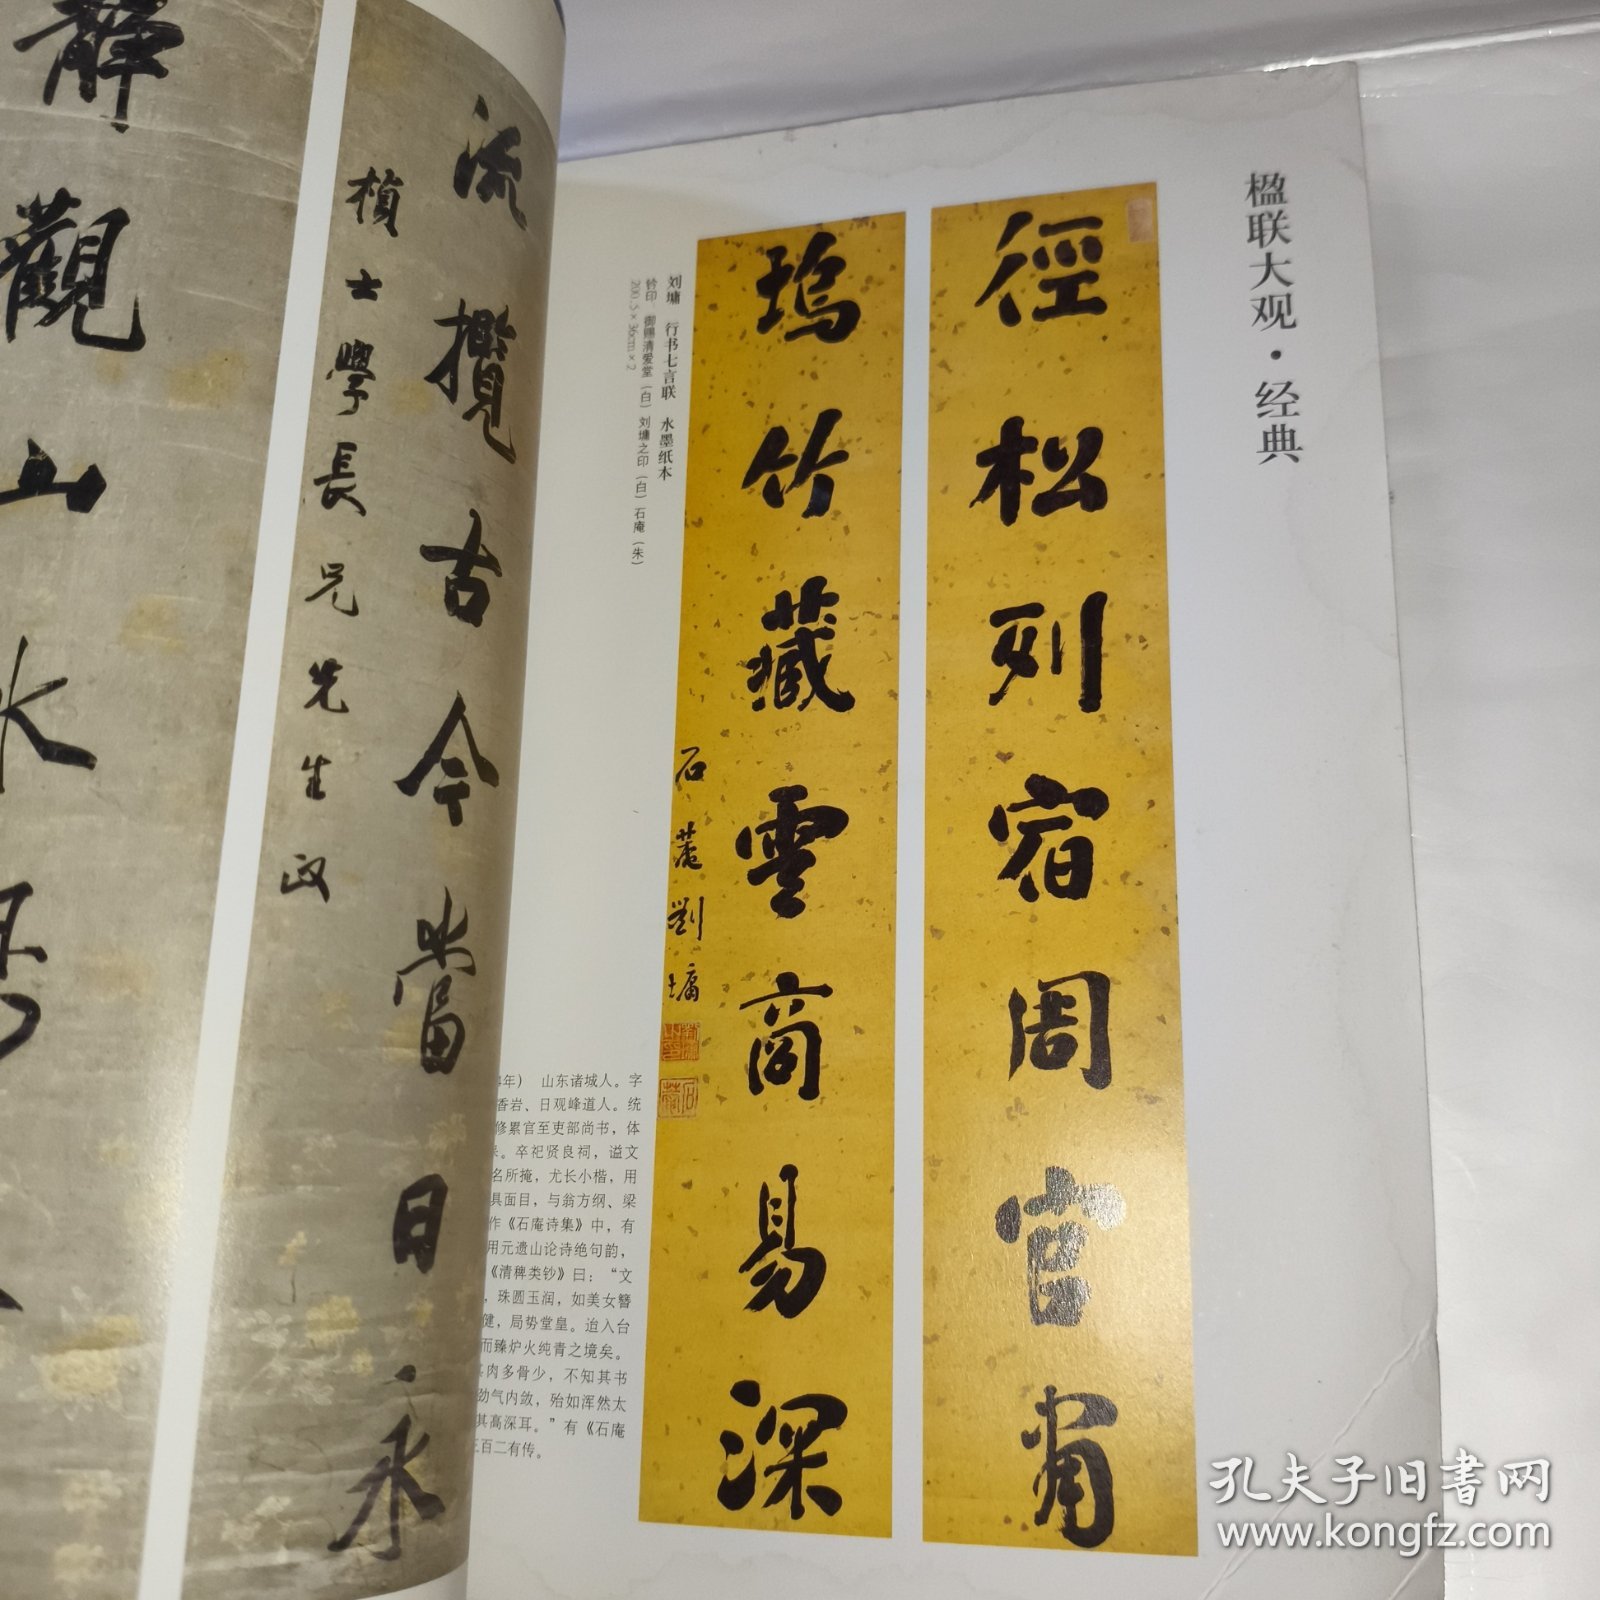 楹联大观·经典
徑松列宿周官肅
塢竹藏雲商易深
石菴劉墉
刘墉 行书七言联 水墨纸本
钤印 御赐清爱堂（白）刘墉之印（白）石庵（朱）
200.5×36cm×2
年） 山东诸城人。字
香岩、日观峰道人。统
修累官至吏部尚书，体
。卒祀贤良祠，谥文
名所掩，尤长小楷，用
具面目，与翁方纲、梁
作《石庵诗集》中，有
用元遗山论诗绝句韵，
《清稗类钞》曰：“文
，珠圆玉润，如美女簪
健，局势堂皇。迨入台
而臻炉火纯青之境矣。
肉多骨少，不知其书
劲气内敛，殆如浑然太
其高深耳。”有《石庵
三百二有传。
流攬古今當日永
楨士學長兄先生政
靜觀山水
孔夫子旧书网
www.kongfz.com